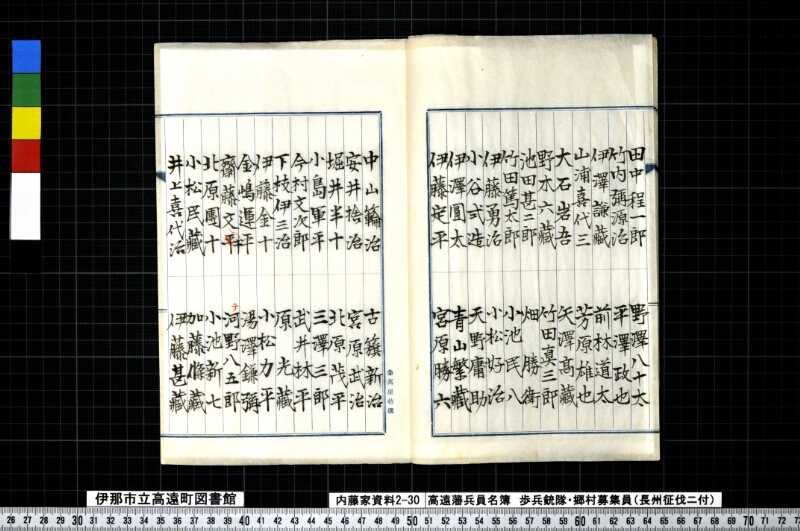 田中程一郎
竹内弥源治
伊澤謙藏
山浦喜代三
大石岩吾
野木六藏
池田甚二郎
竹田篤太郎
伊藤勇治
小谷弐造
伊澤圓太
伊藤定平
野澤八十太
平澤政也
前林道太
芳原雄也
矢澤高藏
竹田真三郎
畑勝衛
小池民八
小松好治
天野庸助
青山繁藏
宮原勝六
中山輪治
安井捨治
堀井半十
小島軍平
今村文次郎
下枝伊三治
伊藤金十
金嶋運平
齋藤文平
北原團十
小松民藏
井上喜代治
古籏新治
宮原武治
北原茂平
三澤三郎
武井林平
原光藏
小松力平
湯澤鎌弥
河野八五郎
小池新七
加藤條藏
伊藤甚藏
伊那市立高遠町図書館
内藤家資料2-30 高遠藩兵員名簿 歩兵銃隊・郷村募集員(長州征伐ニ付)